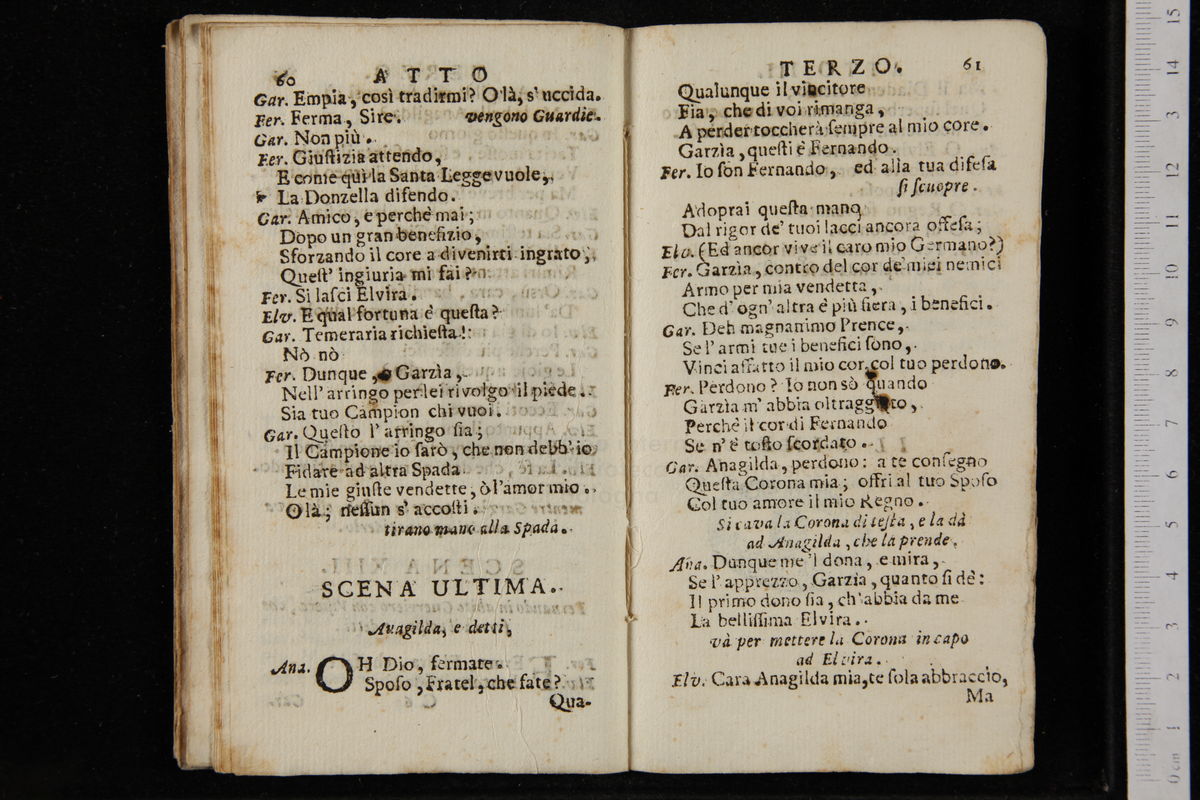 60 ATTO
Gar. Empia, così tradirmi? Olà, s'uccida.
Fer. Ferma, Sire. vengono Guardie.
Gar. Non più.
Fer. Giuſtizia attendo,
E come quì la Santa Legge vuole,
La Donzella difendo.
Gar. Amico, e perchè mai;
Dopo un gran benefizio,
Sforzando il core a divenirti ingrato,
Queſt' ingiuria mi fai?
Fer. Si laſci Elvira.
Elv. E qual fortuna è queſta?
Gar. Temeraria richieſta!
Nò nò
Fer. Dunque, Garzìa,
Nell' arringo per lei rivolgo il piede.
Sia tuo Campion chi vuoi.
Gar. Queſto l' arringo ſia;
Il Campione io ſarò, che non debb' io
Fidare ad altra Spada
Le mie giuſte vendette, ò l'amor mio.
Olà; neſſun s' accoſti.
tirano mano alla Spada.
SCENA ULTIMA.
Anagilda, e detti,
Ana. OH Dio, fermate.
Spoſo, Fratel, che fate?
Qua-
TERZO. 61
Qualunque il vincitore
Fia, che di voi rimanga,
A perder toccherà ſempre al mio core.
Garzìa, queſti è Fernando.
Fer. Io ſon Fernando, ed alla tua difeſa
ſi ſcuopre.
Adoprai queſta mano
Dal rigor de' tuoi lacci ancora offeſa;
Elv. (Ed ancor vive il caro mio Germano?)
Fer. Garzìa, contro del cor de' miei nemici
Armo per mia vendetta,
Che d' ogn' altra è più fiera, i benefici.
Gar. Deh magnanimo Prence,
Se l' armi tue i benefici ſono,
Vinci affatto il mio cor col tuo perdono.
Fer. Perdono? Io non sò quando
Garzìa m' abbia oltraggiato,
Perchè il cor di Fernando
Se n' è toſto ſcordato.
Gar. Anagilda, perdono: a te conſegno
Queſta Corona mia; offri al tuo Spoſo
Col tuo amore il mio Regno.
Si cava la Corona di teſta, e la dà
ad Anagilda, che la prende.
Ana. Dunque me 'l dona, e mira,
Se l' apprezzo, Garzìa, quanto ſi dè:
Il primo dono ſia, ch' abbia da me
La belliſſima Elvira.
và per mettere la Corona in capo
ad Elvira.
Elv. Cara Anagilda mia, te ſola abbraccio,
Ma